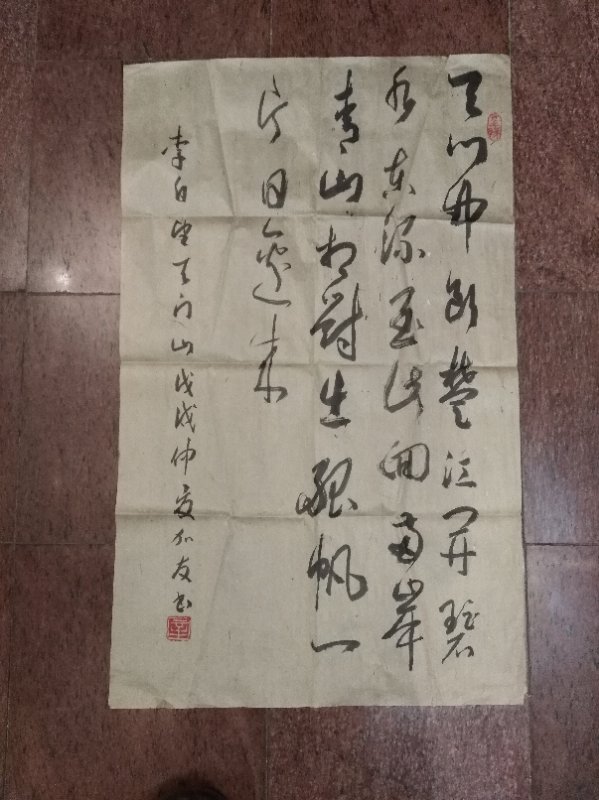 天门中断楚江開碧
水东流至此回两岸
青山相對出孤帆一
片日邊来
李白望天门山戊戌仲夏加友书